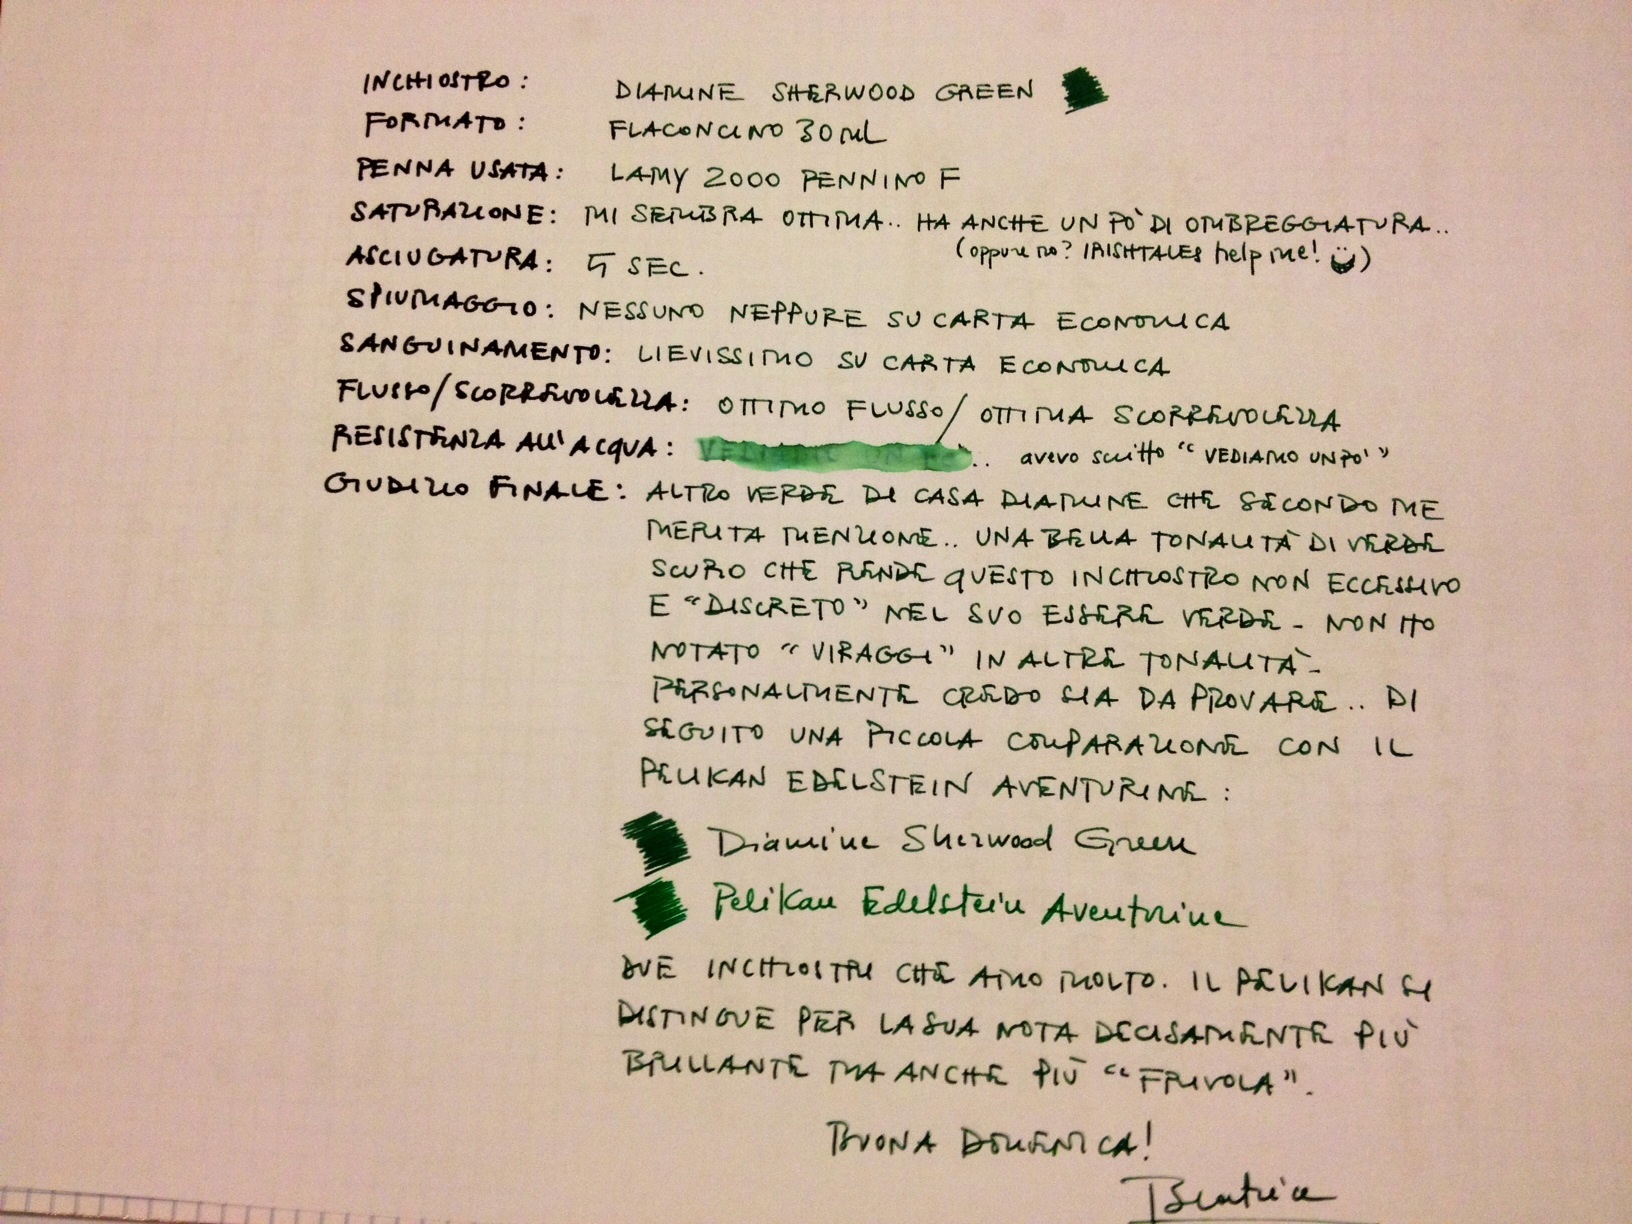 INCHIOSTRO: DIAMINE SHERWOOD GREEN
FORMATO: FLACONCINO 30 ML
PENNA USATA: LAMY 2000 PENNINO F
SATURAZIONE: MI SEMBRA OTTIMA.. HA ANCHE UN PO' DI OMBREGGIATURA..
(oppure no? IRISHTALES help me!)
ASCIUGATURA: 5 SEC.
SPIUMAGGIO: NESSUNO NEPPURE SU CARTA ECONOMICA
SANGUINAMENTO: LIEVISSIMO SU CARTA ECONOMICA
FLUSSO/SCORREVOLEZZA: OTTIMO FLUSSO/ OTTIMA SCORREVOLEZZA
RESISTENZA ALL'ACQUA: VEDIAMO UN PO'.. avevo scritto "VEDIAMO UN PO'"
GIUDIZIO FINALE: ALTRO VERDE DI CASA DIAMINE CHE SECONDO ME
MERITA MENZIONE.. UNA BELLA TONALITÀ DI VERDE
SCURO CHE RENDE QUESTO INCHIOSTRO NON ECCESSIVO
E "DISCRETO" NEL SUO ESSERE VERDE - NON HO
NOTATO "VIRAGGI" IN ALTRE TONALITÀ -
PERSONALMENTE CREDO SIA DA PROVARE.. DI
SEGUITO UNA PICCOLA COMPARAZIONE CON IL
PELIKAN EDELSTEIN AVENTURINE:
Diamine Sherwood Green
Pelikan Edelstein Aventurine
DUE INCHIOSTRI CHE AMO MOLTO. IL PELIKAN SI
DISTINGUE PER LA SUA NOTA DECISAMENTE PIÙ
BRILLANTE MA ANCHE PIÙ "FRIVOLA".
BUONA DOMENICA!
Beatrice